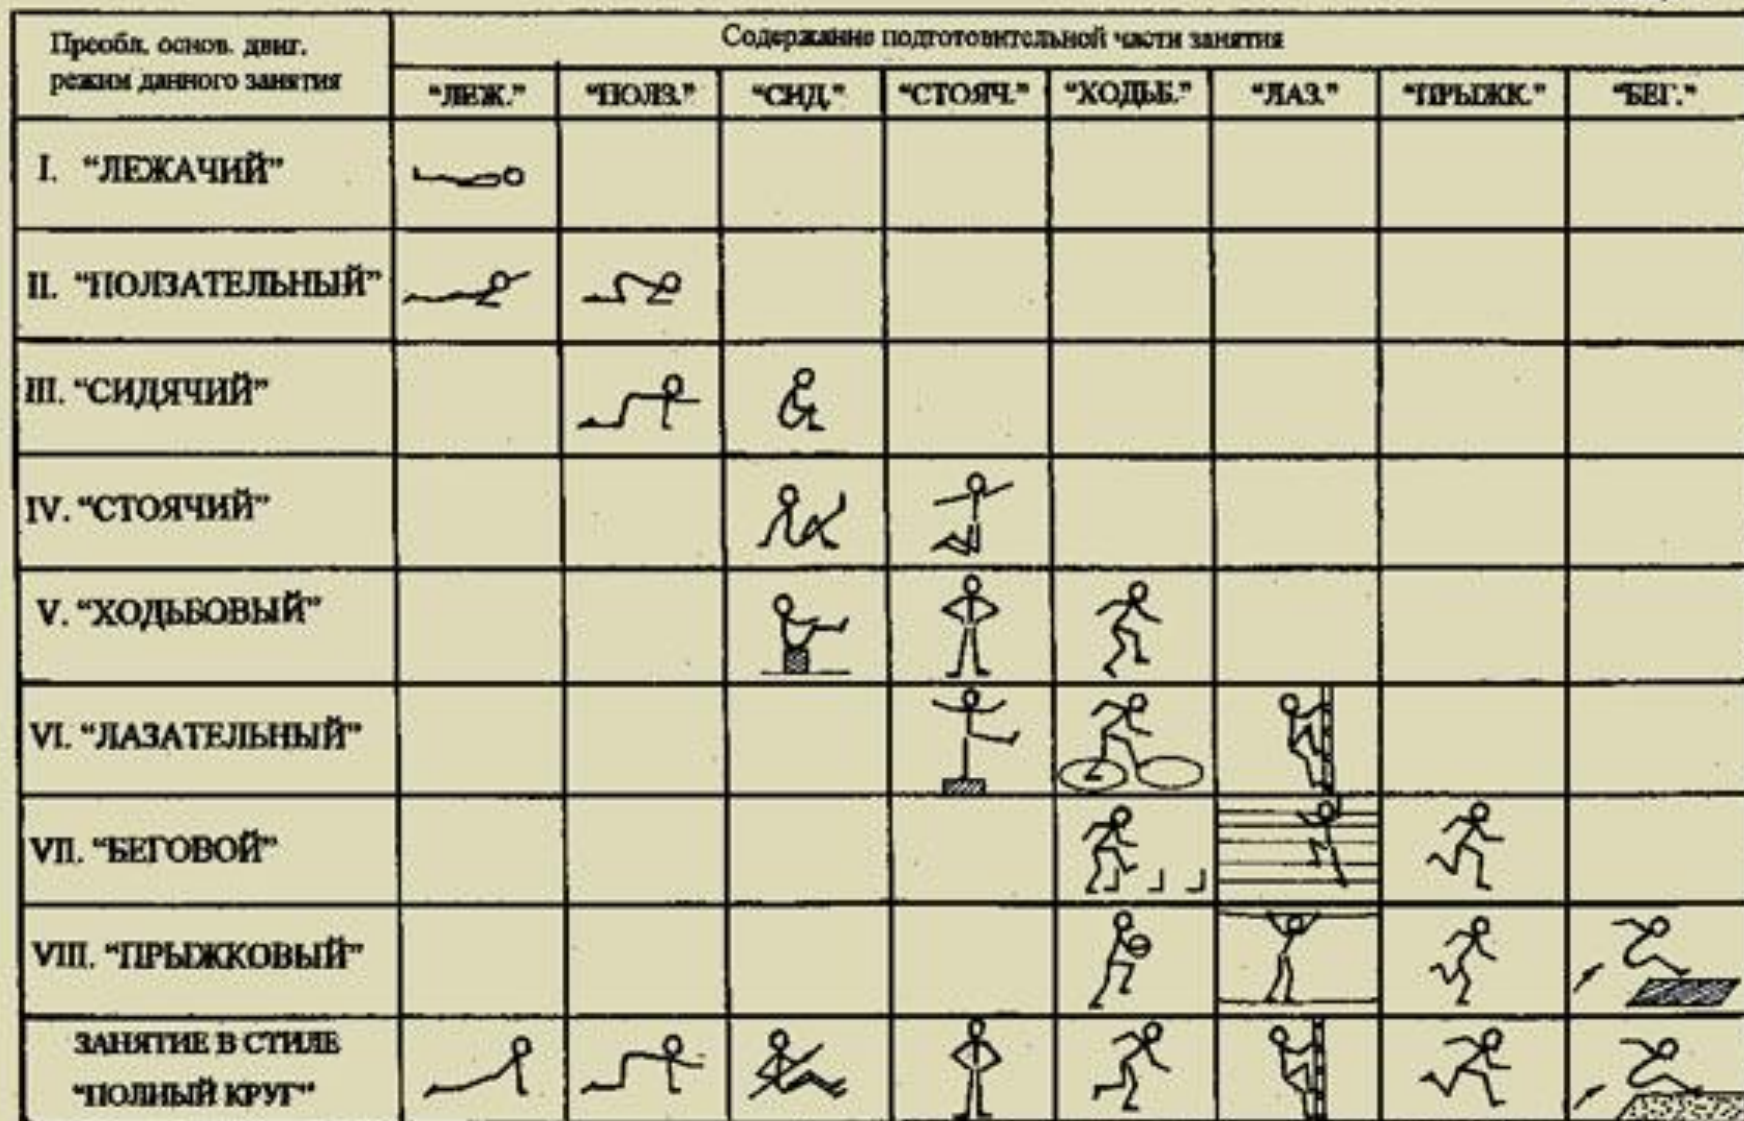 Преобл. основ. двиг.
режим данного занятия
Содержание подготовительной части занятия
"ЛЕЖ." "ПОЛЗ." "СИД." "СТОЯЧ." "ХОДЬБ." "ЛАЗ." "ПРЫЖК." "БЕГ."
I. "ЛЕЖАЧИЙ"
II. "ПОЛЗАТЕЛЬНЫЙ"
III. "СИДЯЧИЙ"
IV. "СТОЯЧИЙ"
V. "ХОДЬБОВЫЙ"
VI. "ЛАЗАТЕЛЬНЫЙ"
VII. "БЕГОВОЙ"
VIII. "ПРЫЖКОВЫЙ"
ЗАНЯТИЕ В СТИЛЕ
"ПОЛНЫЙ КРУГ"